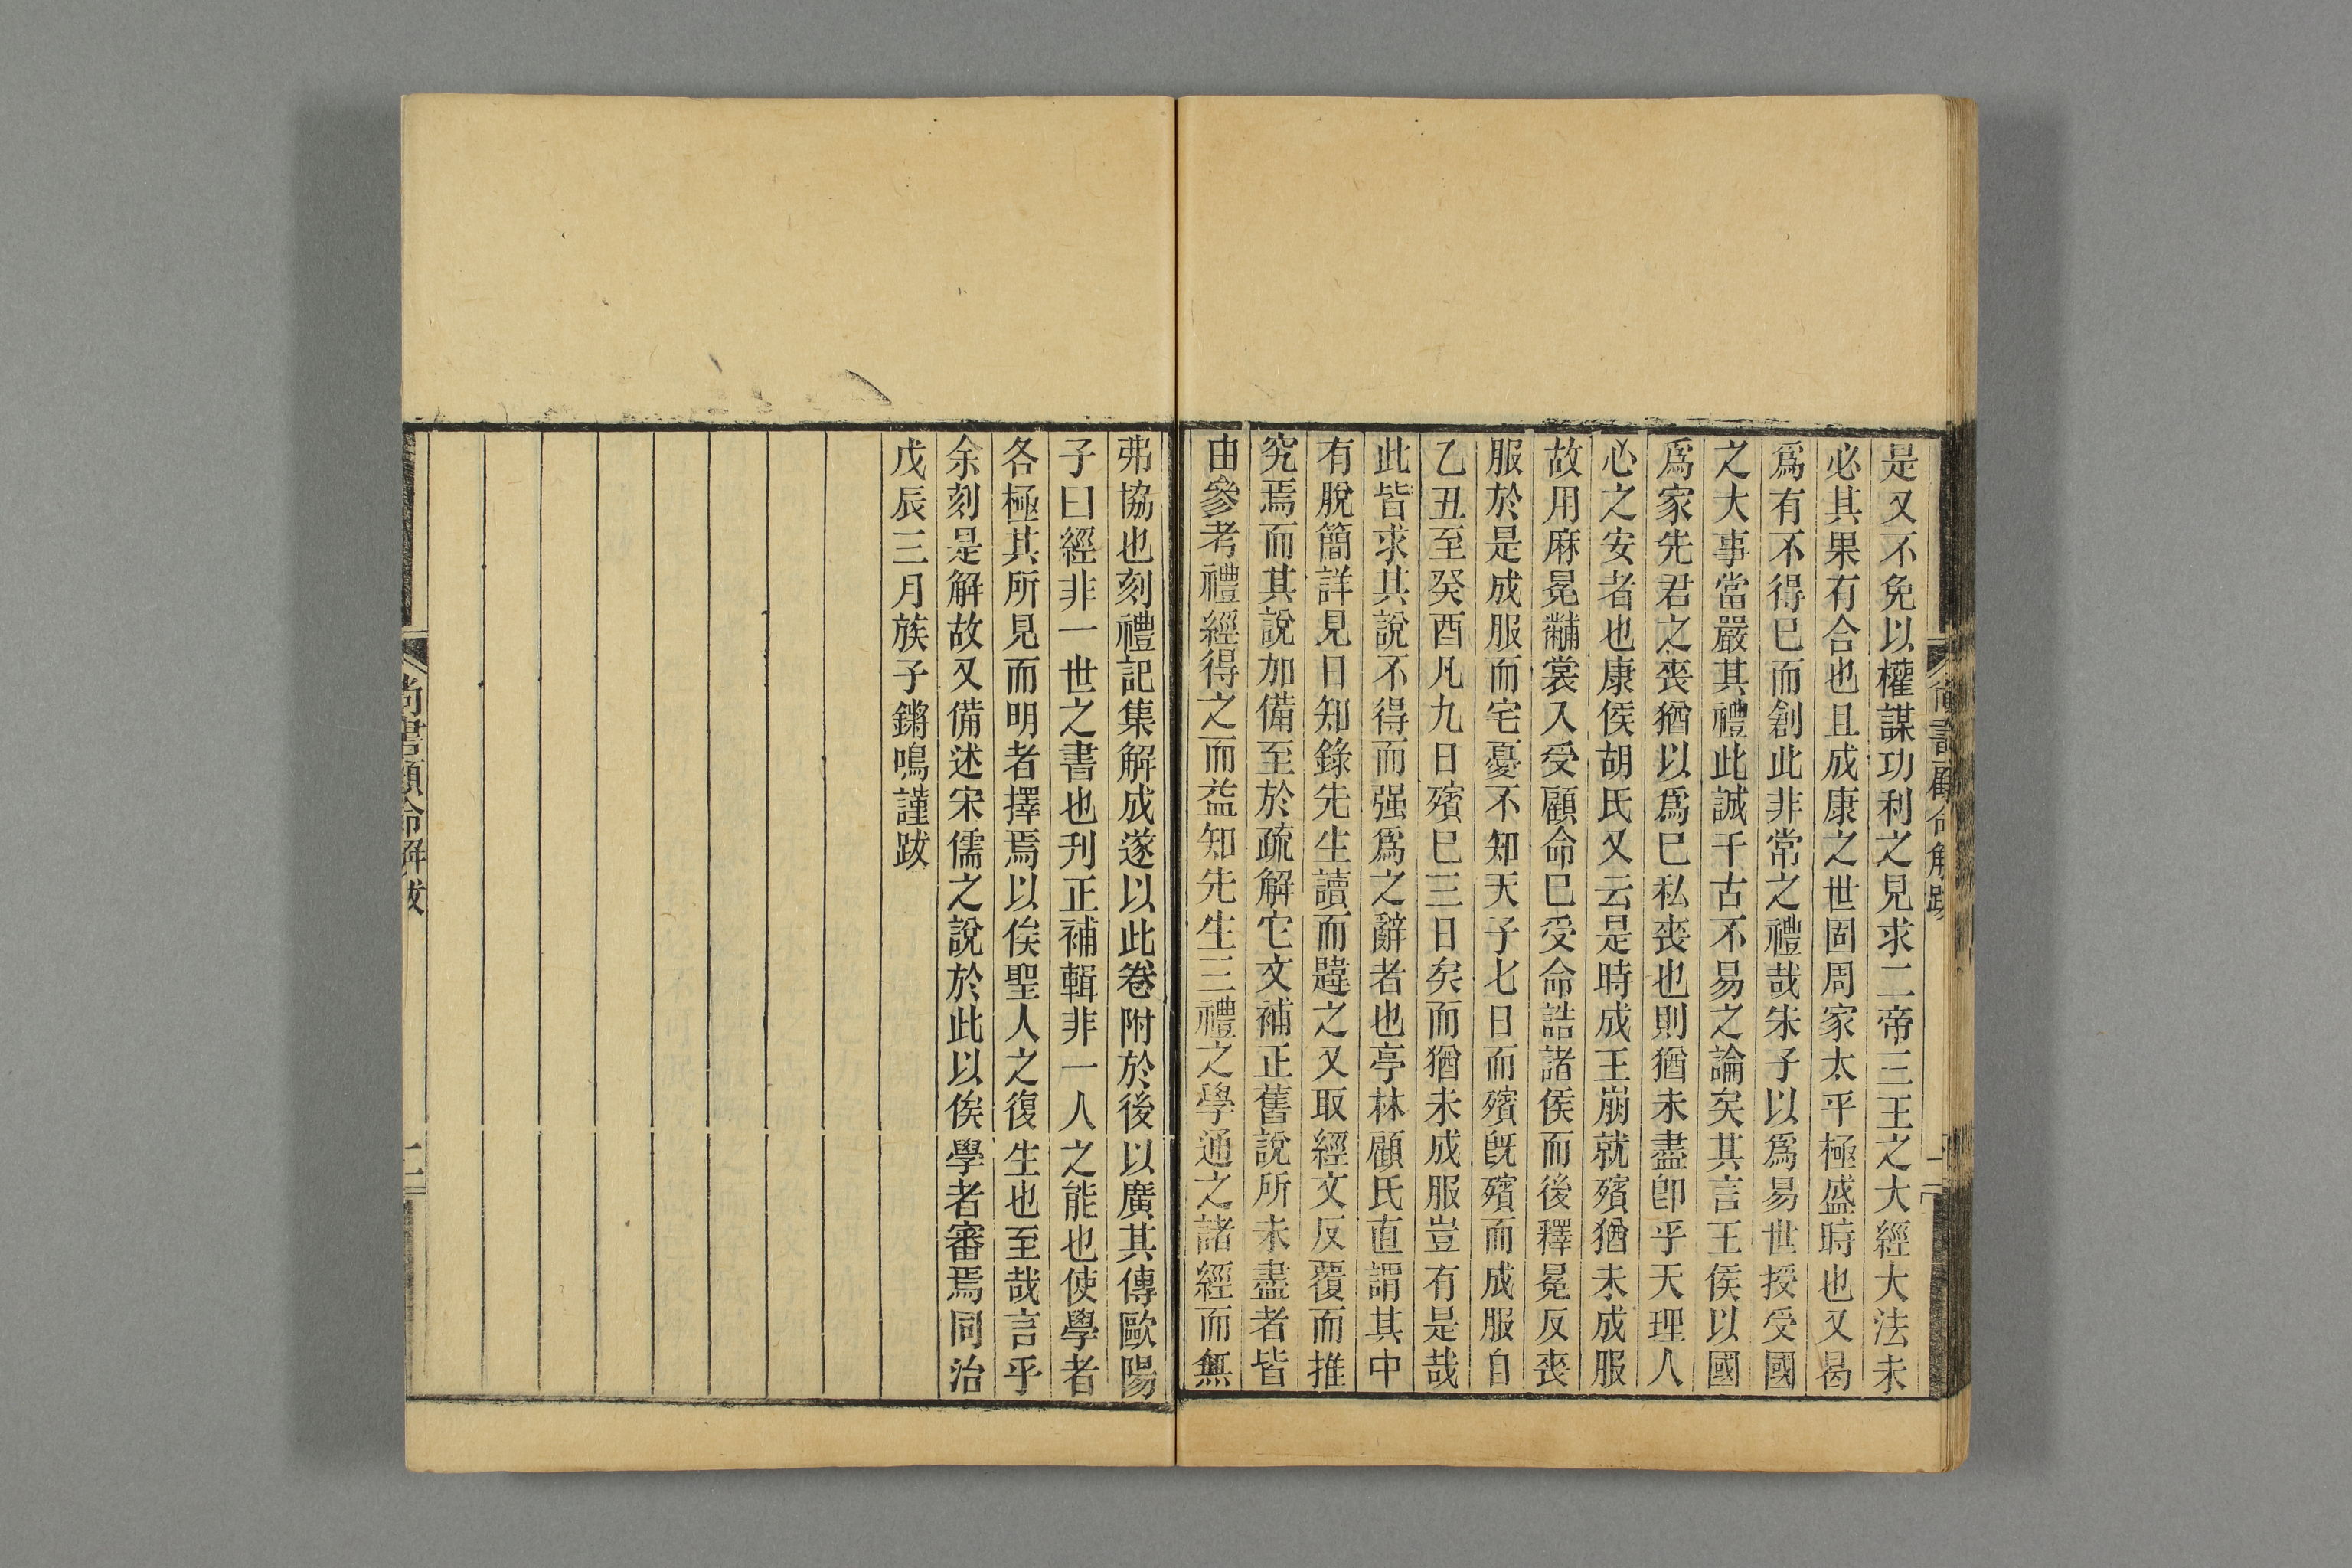 尚書顧命解跋
是又不免以權謀功利之見求二帝三王之大經大法未
必其果有合也且成康之世固周家太平極盛時也又曷
爲有不得巳而創此非常之禮哉朱子以爲易世授受國
之大事當嚴其禮此誠千古不易之論矣其言王侯以國
爲家先君之喪猶以爲巳私喪也則猶未盡卽乎天理人
心之安者也康侯胡氏又云是時成王崩就殯猶未成服
故用麻冕黼裳入受顧命巳受命誥諸侯而後釋冕反喪
服於是成服而宅憂不知天子七日而殯旣殯而成服自
乙丑至癸酉凡九日殯巳三日矣而猶未成服豈有是哉
此皆求其說不得而强爲之辭者也亭林顧氏直謂其中
有脫簡詳見日知錄先生讀而韙之又取經文反覆而推
究焉而其說加備至於疏解它文補正舊說所未盡者皆
由參考禮經得之而益知先生三禮之學通之諸經而無
弗協也刻禮記集解成遂以此卷附於後以廣其傳歐陽
子曰經非一世之書也刊正補輯非一人之能也使學者
各極其所見而明者擇焉以俟聖人之復生也至哉言乎
余刻是解故又備述宋儒之說於此以俟學者審焉同治
戊辰三月族子鏘鳴謹跋
尚書顧命解跋
二